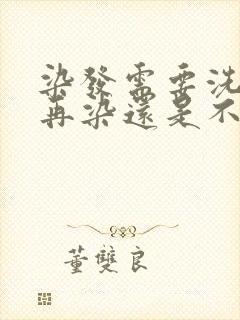 染發需要洗
再染還是不
董雙良